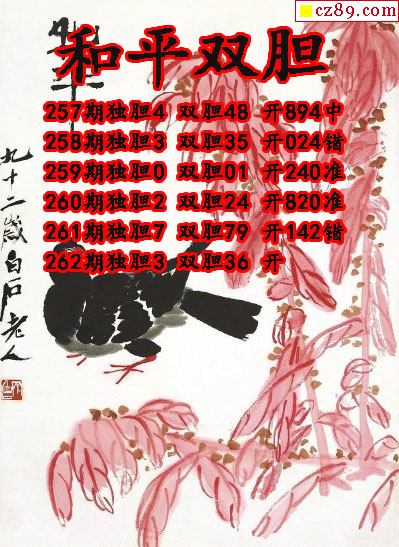 cz89.com
和平双胆
257期独胆4 双胆48 开894中
258期独胆3 双胆35 开024错
259期独胆0 双胆01 开240准
260期独胆2 双胆24 开820准
261期独胆7 双胆79 开142错
262期独胆3 双胆36 开
九十二岁白石老人